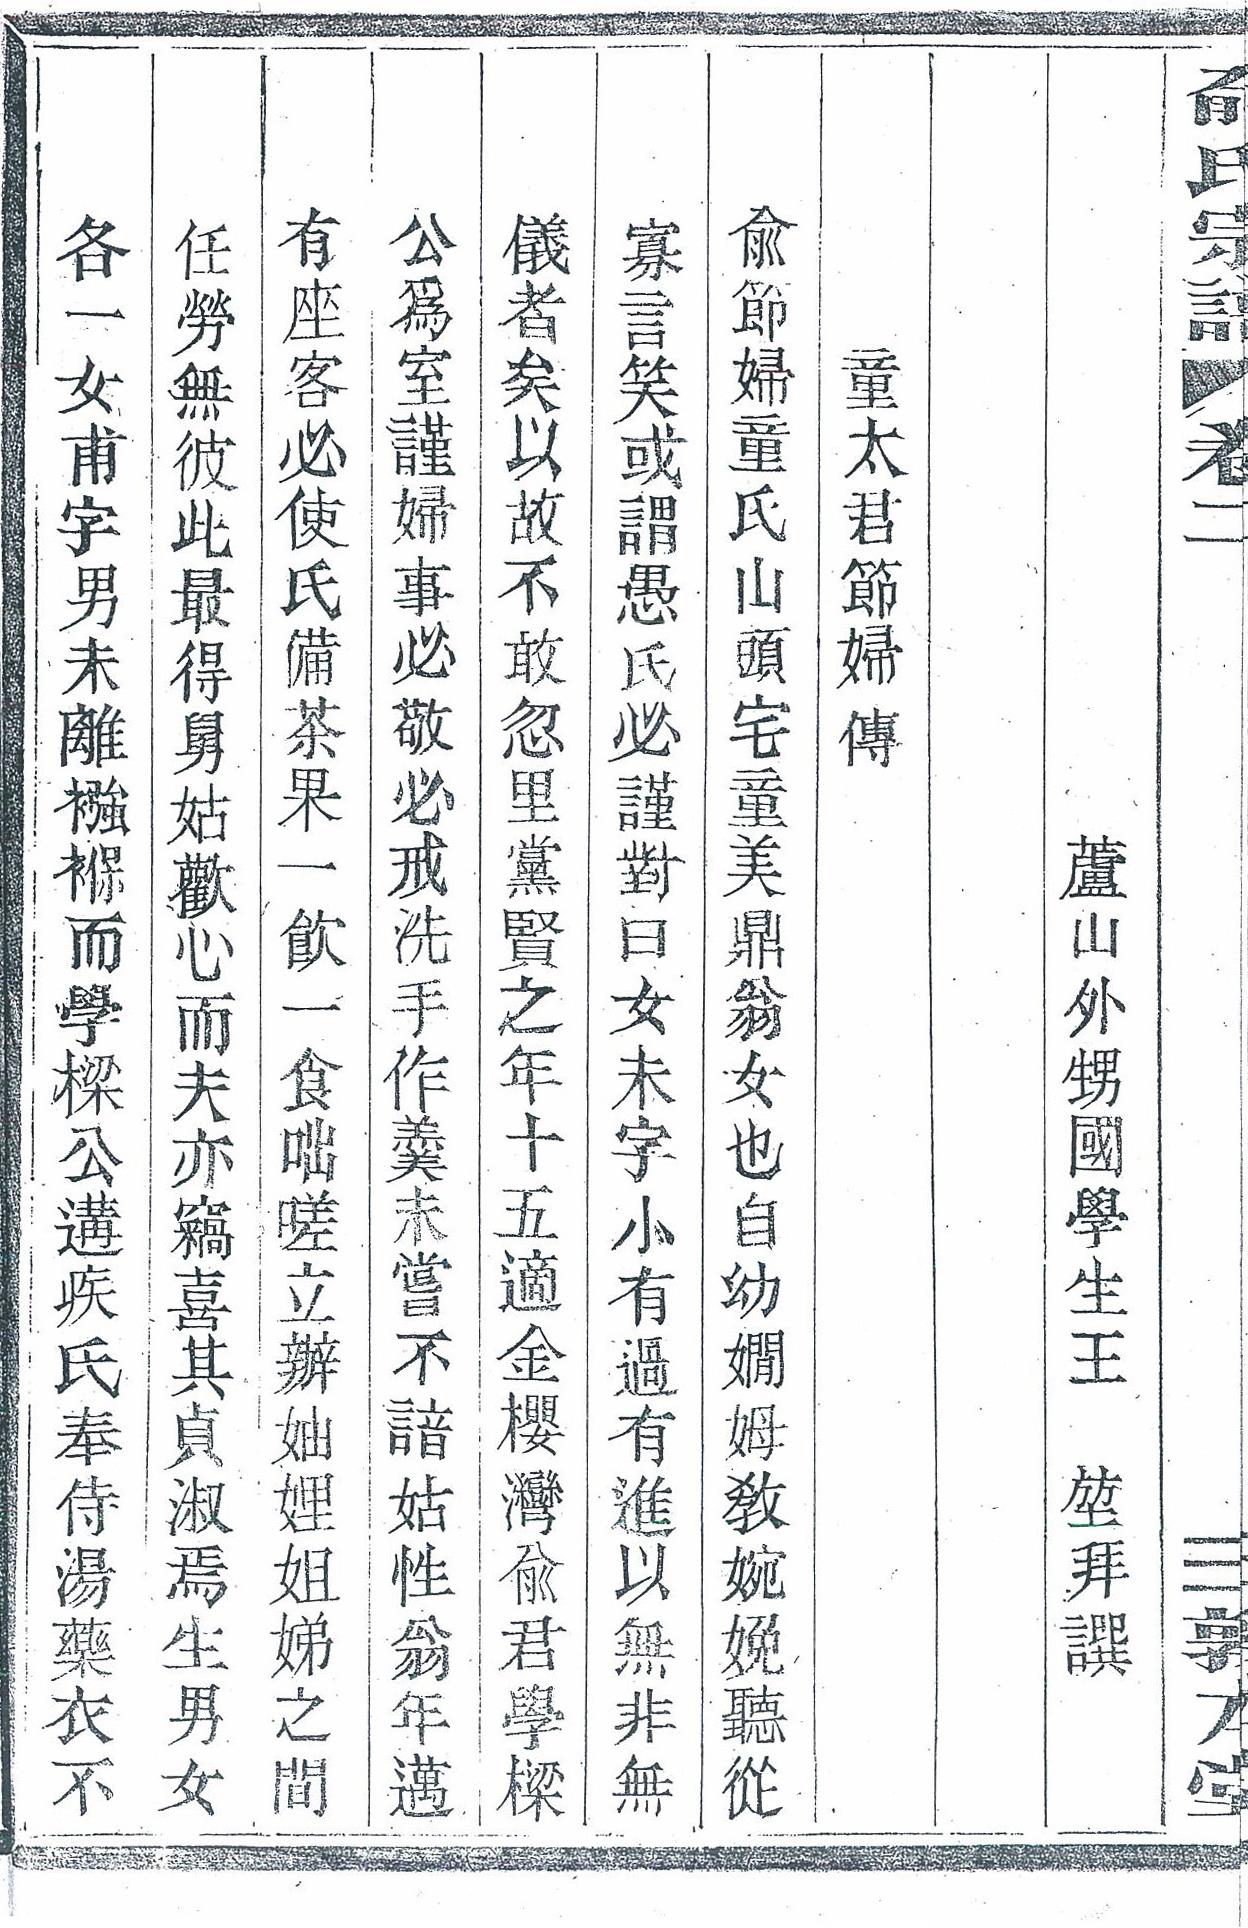 俞氏宗譜 卷二 三 敦本堂
蘆山外甥國學生王 堃拜譔
童太君節婦傳
俞節婦童氏山頭宅童美鼎翁女也自幼嫺姆敎婉娩聽從
寡言笑或謂愚氏必謹對曰女未字小有過有進以無非無
儀者矣以故不敢忽里黨賢之年十五適金櫻灣俞君學樑
公爲室謹婦事必敬必戒洗手作羹未嘗不諳姑性翁年邁
有座客必使氏備茶果一飮一食咄嗟立辦妯娌姐娣之間
任勞無彼此最得舅姑歡心而夫亦竊喜其貞淑焉生男女
各一女甫字男未離襁褓而學樑公遘疾氏奉侍湯藥衣不